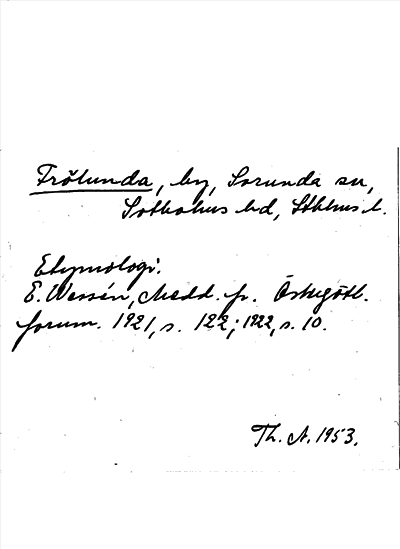 Frölunda, by, Sorunda sn,
Sotholms hd, Sthlms l.
Etymologi.
E. Wessén, Medd. fr. Östergötl.
fornm. 1921, s. 122; 1922, s. 10.
Th. A. 1953.